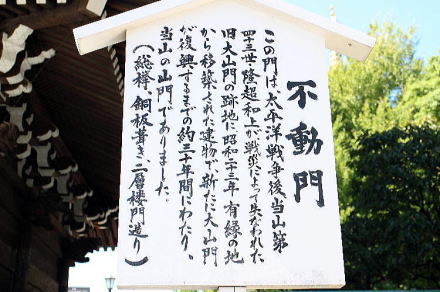 不動門
この門は、太平洋戦争後当山第
四十三世・隆超和上が戦災によって失われた
旧大山門の跡地に昭和二十三年、有縁の地
から移築された建物で、新たに大山門
が復興するまでの約三十年間にわたり、
当山の山門でありました。
(総欅、銅板葺き、二層楼門造り)